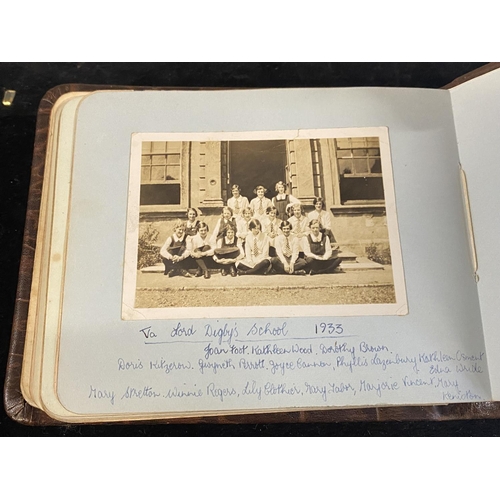 Va Lord Digby's School 1933
Joan Foot. Kathleen Wood, Dorothy Brown
Doris Hitzerow. Gwyneth Perrott, Joyce Gannon, Phyllis Lazenbury Kathleen
Edna Wride
Mary Stretton. Winnie Rogers, Lily Clothier, Mary Tabor, Marjorie Vincent, Mary